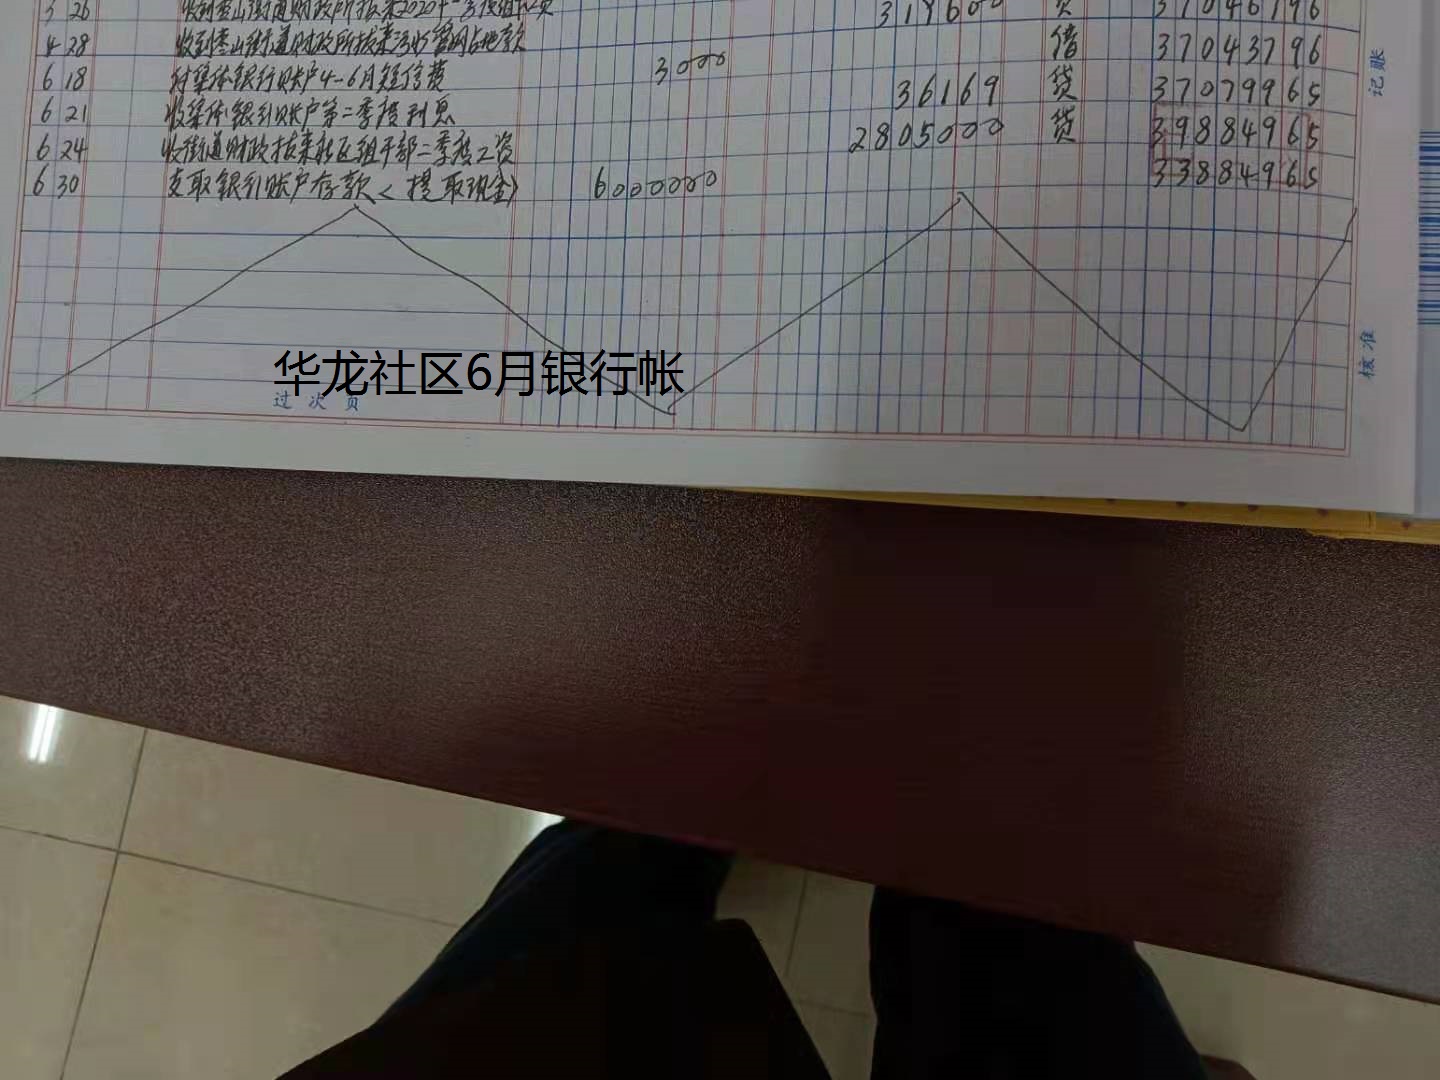 3 26 收到 街道财政所拨来2020 319600 贷 37046796
4 28 收到 街道财政所拨来污水管网占地款
6 18 付集体银行账户4-6月短信费 3000 借 37043796
6 21 收集体银行账户第二季度利息 36169 贷 37079965
6 24 收街道财政拨来社区组干部二季度工资 2805000 贷 39884965
6 30 支取银行账户存款(提取现金) 6000000 33884965
华龙社区6月银行帐
过次页
记账
核准